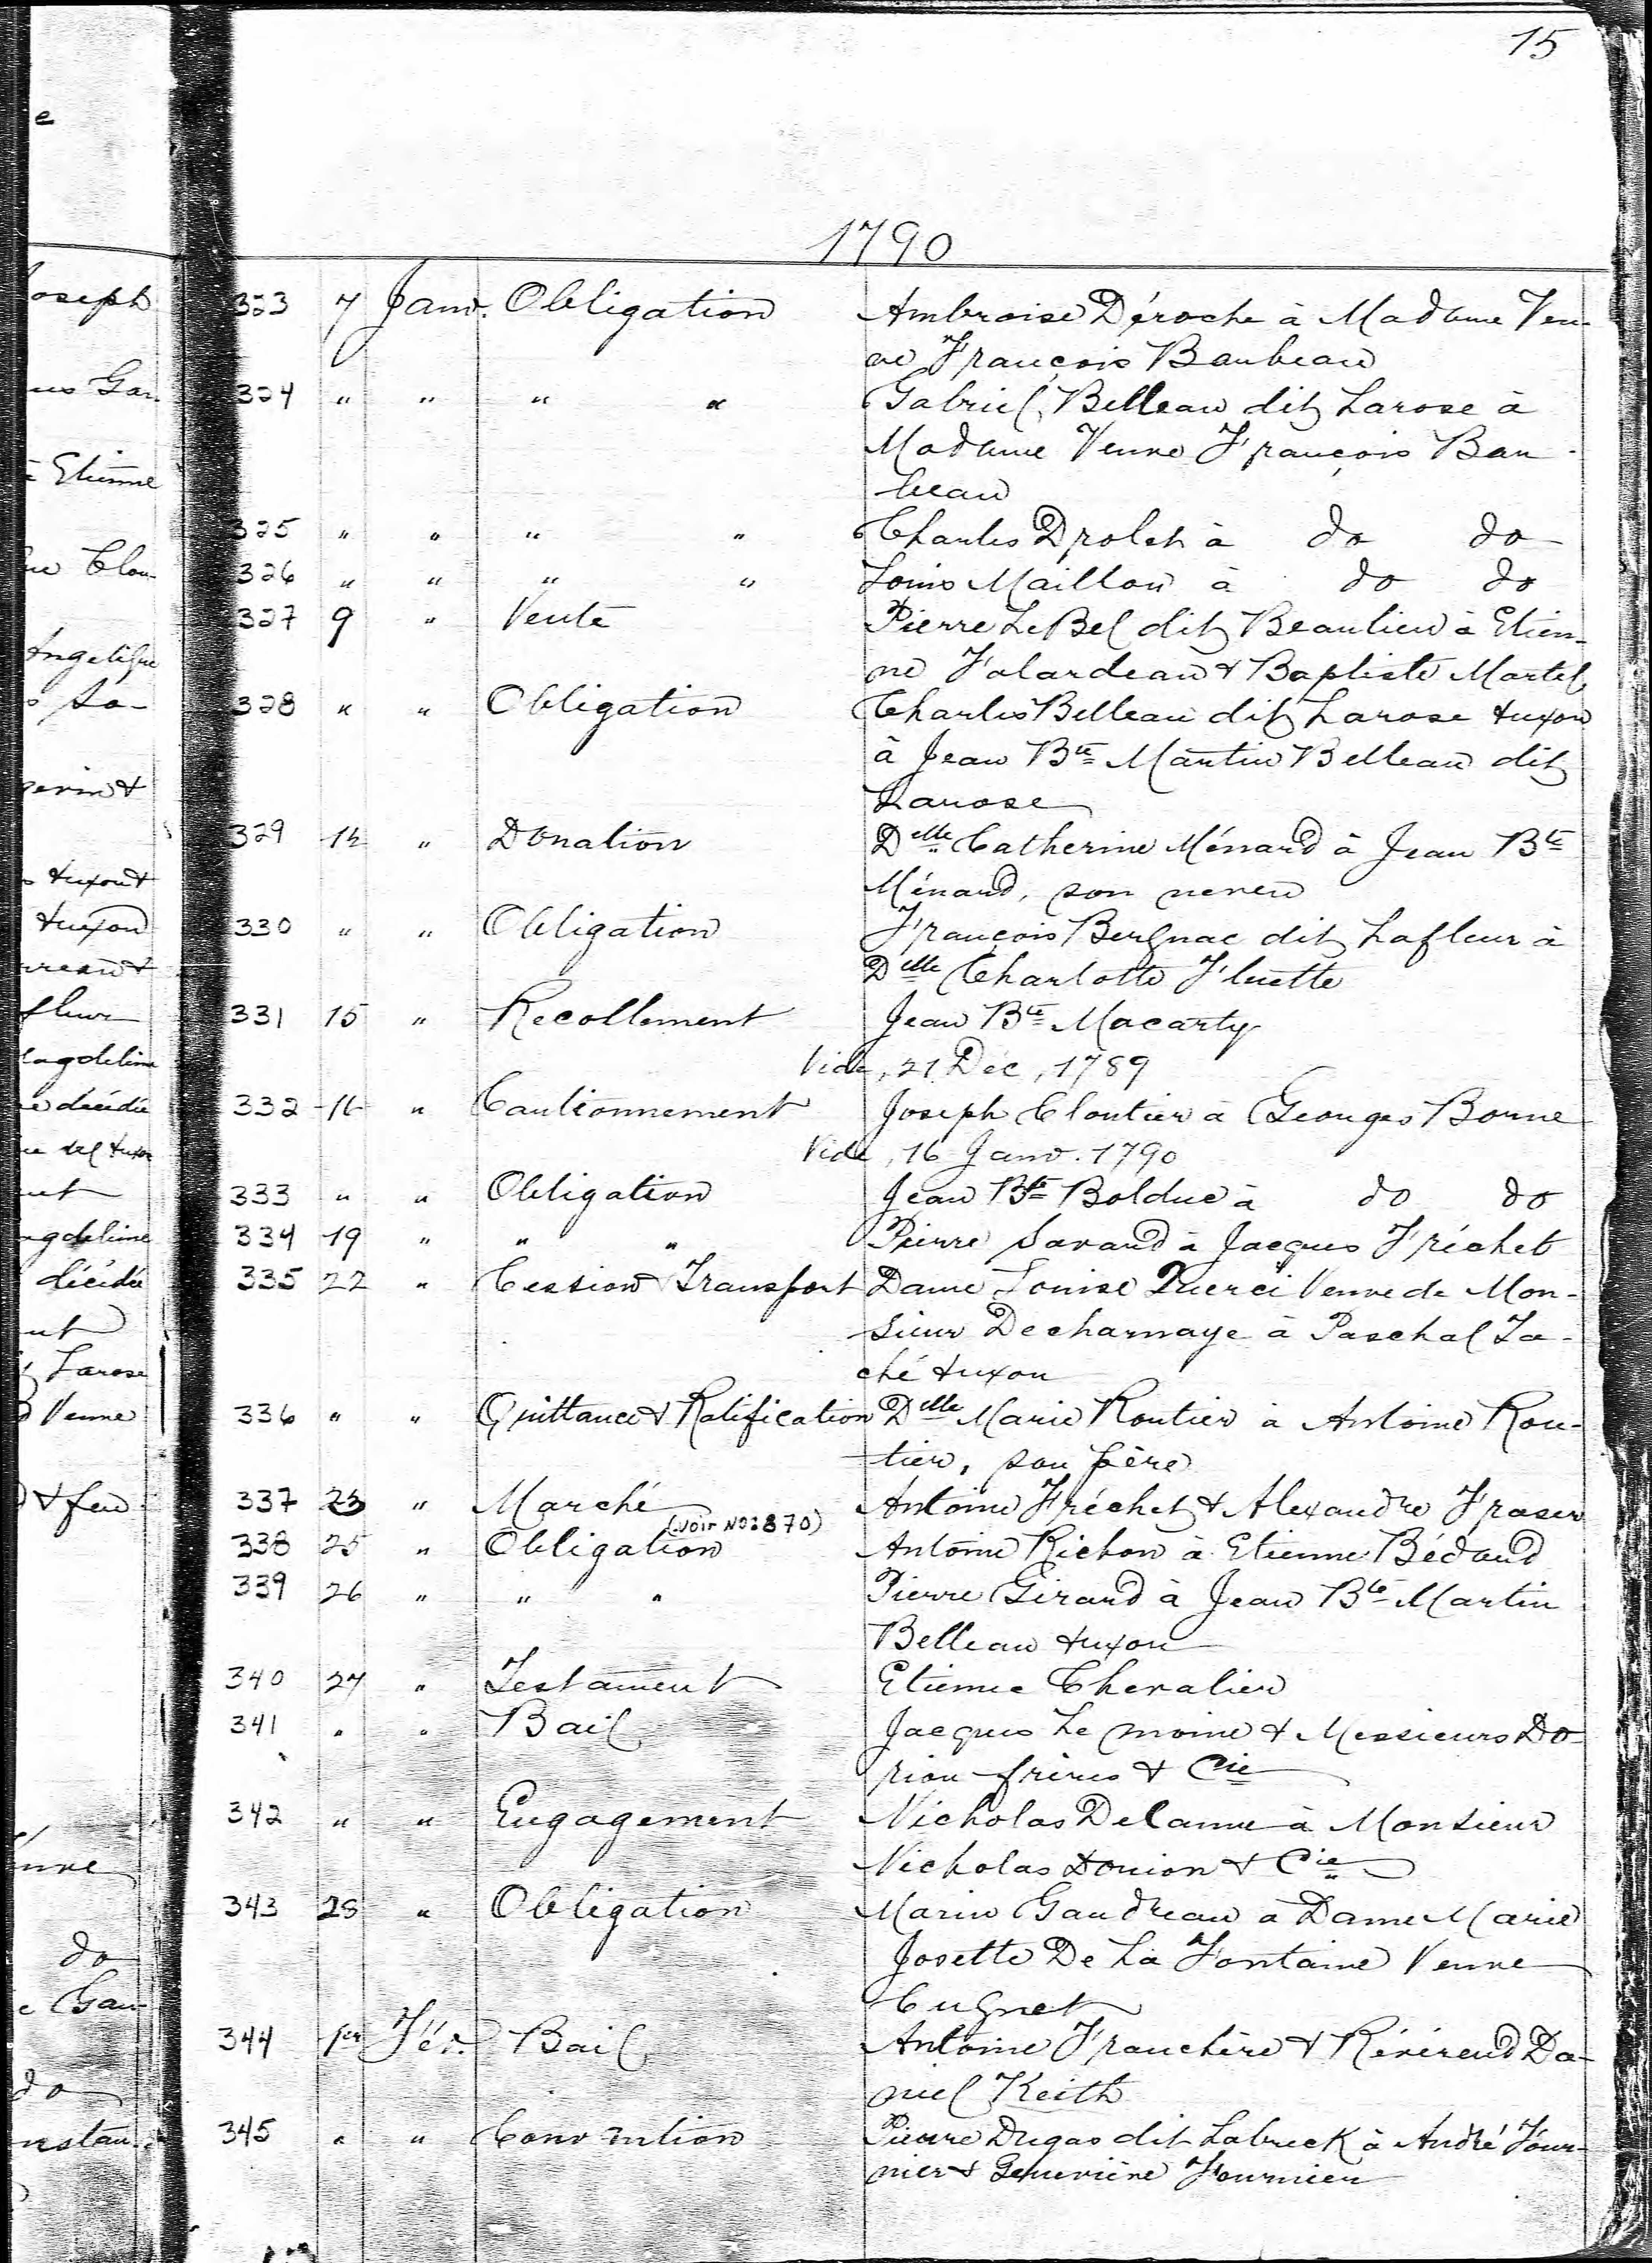 15
1790
323 7 Janv. Obligation Ambroise Déroche à Madame Veu-
ve François Baubeau
324 " " " " Gabriel Belleau dit Larose à
Madame Veuve François Bau-
beau
325 " " " " Charles Drolet à do do
326 " " " " Louis Maillou à do do
327 9 " Vente Pierre LeBel dit Beaulieu à Etien-
ne Falardeau & Baptiste Martel
328 " " Obligation Charles Belleau dit Larose &uxor
à Jean Bte Martin Belleau dit
Larose
329 14 " Donation Delle Catherine Ménard à Jean Bte
Ménard, son neveu
330 " " Obligation François Bergnac dit Lafleur à
Delle Charlotte Fluette
331 15 " Recollement Jean Bte Macarty
Vide, 21 Déc, 1789
332 16 " Cautionnement Joseph Cloutier à Georges Borne
Vide, 16 Janv. 1790
333 " " Obligation Jean Bte Bolduc à do do
334 19 " " " Pierre Savard à Jacques Fréchet
335 22 " Cession & Transport Dame Louise Querci Veuve de Mon-
sieur Decharnaye à Paschal Ta-
ché &uxor
336 " " Quittance & Ratification Delle Marie Routier à Antoine Rou-
tier, son père
337 23 " Marché Antoine Fréchet & Alexandre Fraser
(Voir No: 870)
338 25 " Obligation Antoine Richon à Etienne Bédard
339 26 " " " Pierre Girard à Jean Bte Martin
Belleau &uxor
340 27 " Testament Etienne Chevalier
341 " " Bail Jacques Le moine & Messieurs Do-
rion frères & Cie
342 " " Engagement Nicholas Delanue à Monsieur
Nicholas Dorion & Cie
343 28 " Obligation Marin Gaudreau à Dame Marie
Josette De La Fontaine Veuve
Cugnet
344 1er Fév. Bail Antoine Franchère & Révérend Da-
niel Keith
345 " " Convention Pierre Dugas dit Labreck à André Four-
nier & Geneviève Fournier